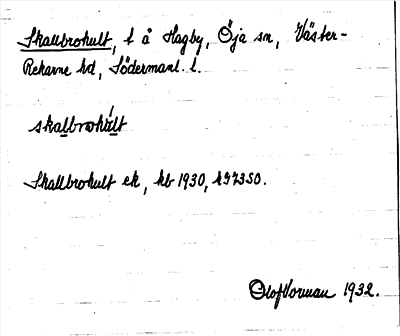 Skallbrohult, t å Hagby, Öja sn, Väster-
Rekarne hd, Södermanl. l.
skallbrohult
Skallbrohult ek, kb 1930,
Olof Vorman 1932.